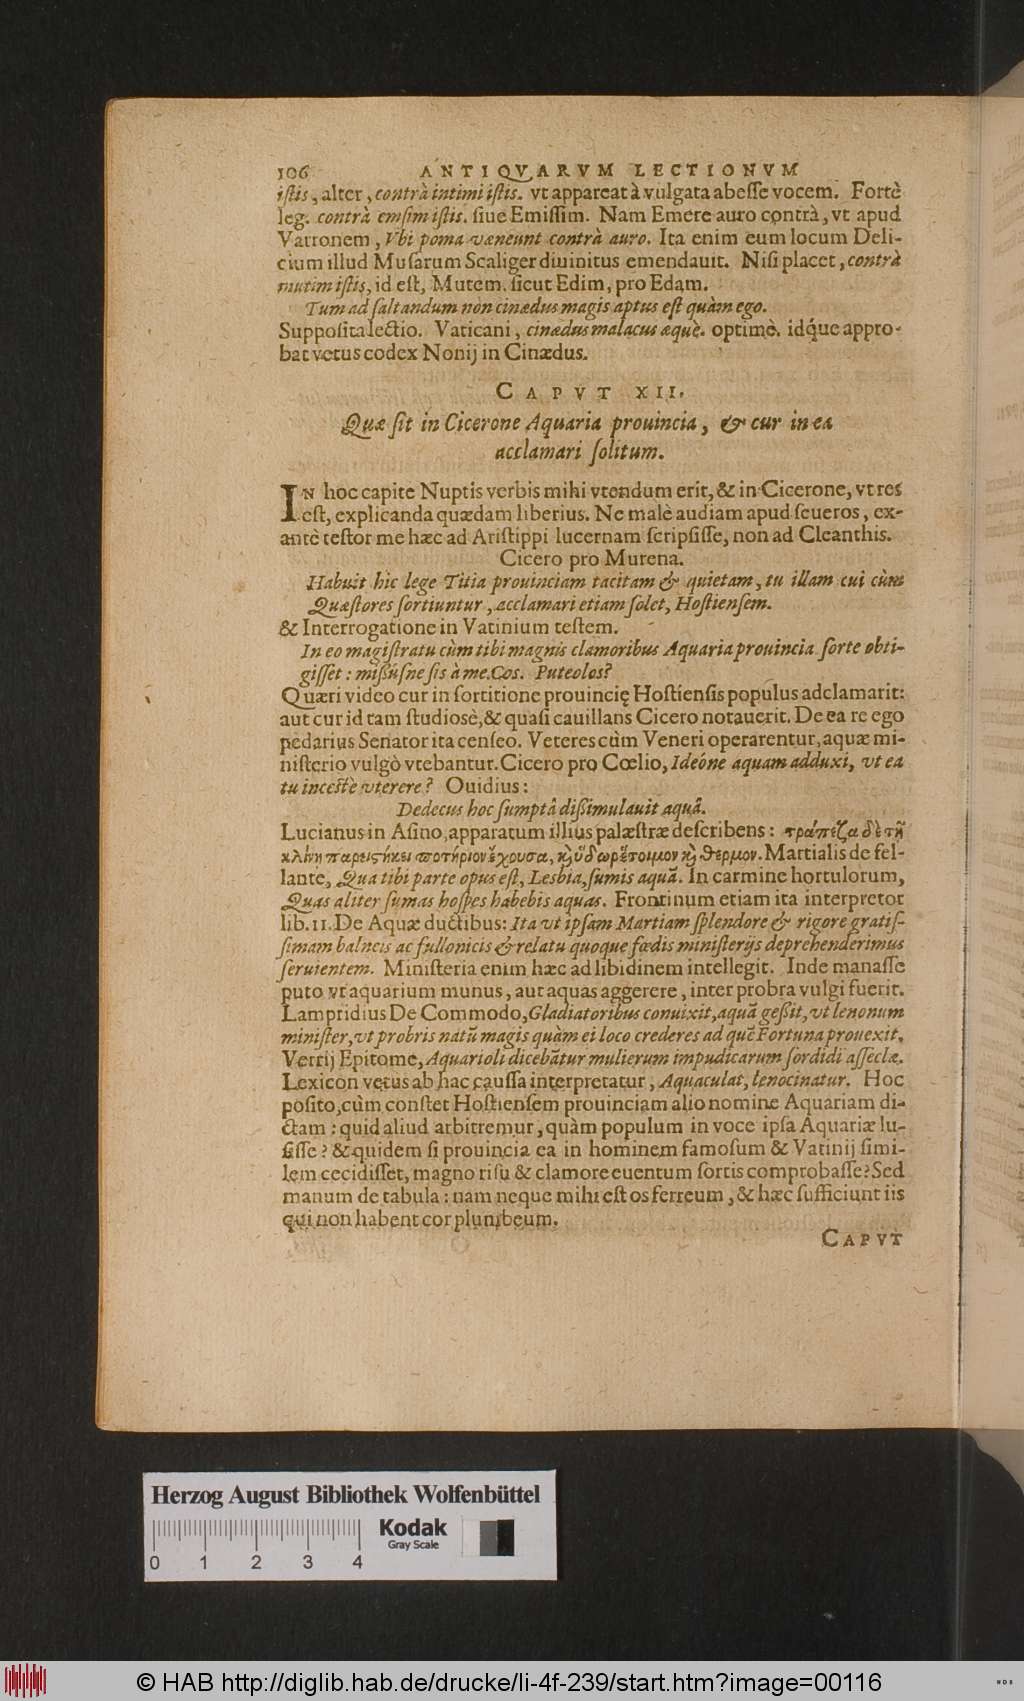 106 ANTIQVARVM LECTIONVM
iſtis, alter, contrà intimi iſtis. vt appareat à vulgata abeſſe vocem. Fortè
leg. contrà emſim iſtis. ſiue Emiſſim. Nam Emere auro contrà, vt apud
Varronem, Vbi poma væneunt contrà auro. Ita enim eum locum Deli-
cium illud Muſarum Scaliger diuinitus emendauit. Niſi placet, contrà
mutim iſtis, id eſt, Mutem. ſicut Edim, pro Edam.
Tum ad ſaltandum non cinædus magis aptus eſt quàm ego.
Suppoſita lectio. Vaticani, cinædus malacus æquè. optimè. idq́ue appro-
bat vetus codex Nonij in Cinædus.
CAPVT XII.
Quæ ſit in Cicerone Aquaria prouincia, & cur in ea
acclamari ſolitum.
IN hoc capite Nuptis verbis mihi vtendum erit, & in Cicerone, vt res
eſt, explicanda quædam liberius. Ne malè audiam apud ſeueros, ex-
antè teſtor me hæc ad Ariſtippi lucernam ſcripſiſſe, non ad Cleanthis.
Cicero pro Murena.
Habuit hic lege Titia prouinciam tacitam & quietam, tu illam cui cùm
Quæſtores ſortiuntur, acclamari etiam ſolet, Hoſtienſem.
& Interrogatione in Vatinium teſtem.
In eo magiſtratu cùm tibi magnis clamoribus Aquaria prouincia ſorte obti-
giſſet: miſſuſne ſis à me Cos. Puteolos?
Quæri video cur in ſortitione prouincię Hoſtienſis populus adclamarit:
aut cur id tam ſtudiosè, & quaſi cauillans Cicero notauerit. De ea re ego
pedarius Senator ita cenſeo. Veteres cùm Veneri operarentur, aquæ mi-
niſterio vulgò vtebantur. Cicero pro Cœlio, Ideóne aquam adduxi, vt ea
tu inceſtè vterere? Ouidius:
Dedecus hoc ſumptâ diſſimulauit aquâ.
Lucianus in Aſino, apparatum illius palæſtræ deſcribens: τράπεζα δὲ τῇ
κλίνῃ παρειϛήκει ποτήριον ἔχουσα, κỳ ὕδωρ ἕτοιμον κỳ θερμον. Martialis de fel-
lante, Qua tibi parte opus eſt, Lesbia, ſumis aquā. In carmine hortulorum,
Quas aliter ſumas hoſpes habebis aquas. Frontinum etiam ita interpretor
lib. 11. De Aquæ ductibus: Ita vt ipſam Martiam ſplendore & rigore gratiſ-
ſimam balneis ac fullonicis & relatu quoque fœdis miniſterijs deprehenderimus
ſeruientem. Miniſteria enim hæc ad libidinem intellegit. Inde manaſſe
puto vt aquarium munus, aut aquas aggerere, inter probra vulgi fuerit.
Lampridius De Commodo, Gladiatoribus conuixit, aquā geſſit, vt lenonum
miniſter, vt probris natū magis quàm ei loco crederes ad quē Fortuna prouexit.
Verrij Epitome, Aquarioli dicebātur mulierum impudicarum ſordidi aſſeclæ.
Lexicon vetus ab hac cauſſa interpretatur, Aquaculat, lenocinatur. Hoc
poſito, cùm conſtet Hoſtienſem prouinciam alio nomine Aquariam di-
ctam: quid aliud arbitremur, quàm populum in voce ipſa Aquariæ lu-
ſiſſe? & quidem ſi prouincia ea in hominem famoſum & Vatinij ſimi-
lem cecidiſſet, magno riſu & clamore euentum ſortis comprobaſſe? Sed
manum de tabula: nam neque mihi eſt os ferreum, & hæc ſufficiunt iis
qui non habent cor plumbeum.
CAPVT
Herzog August Bibliothek Wolfenbüttel
Kodak
Gray Scale
0 1 2 3 4
© HAB http://diglib.hab.de/drucke/li-4f-239/start.htm?image=00116